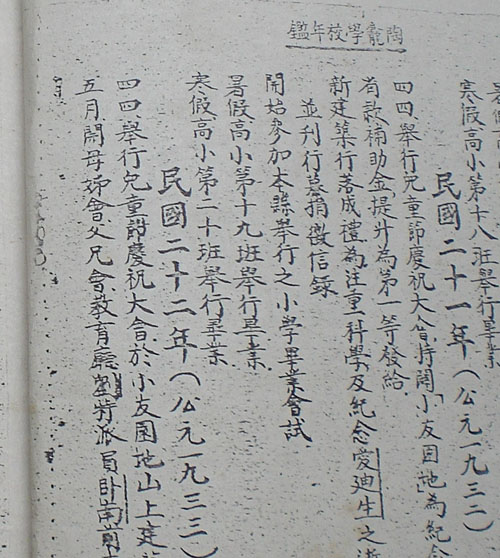 陶龕學校年鑑
暑假高
寒假高小第十八班舉行畢業
民國二十一年(公元一九三二)
四四舉行兒童節慶祝大會特開「小友園地」為紀念
省款補助金提升為第一等發給
新建築行落成禮為注重科學及紀念愛迪生之
並刊行募捐徵信錄
開始參加本縣舉行之小學畢業會試
暑假高小第十九班舉行畢業
寒假高小第二十班舉行畢業
民國二十二年(公元一九三三)
四四舉行兒童節慶祝大會於小友園地山上建
五月開母姊會父兄會教育廳劉特派員卧南前